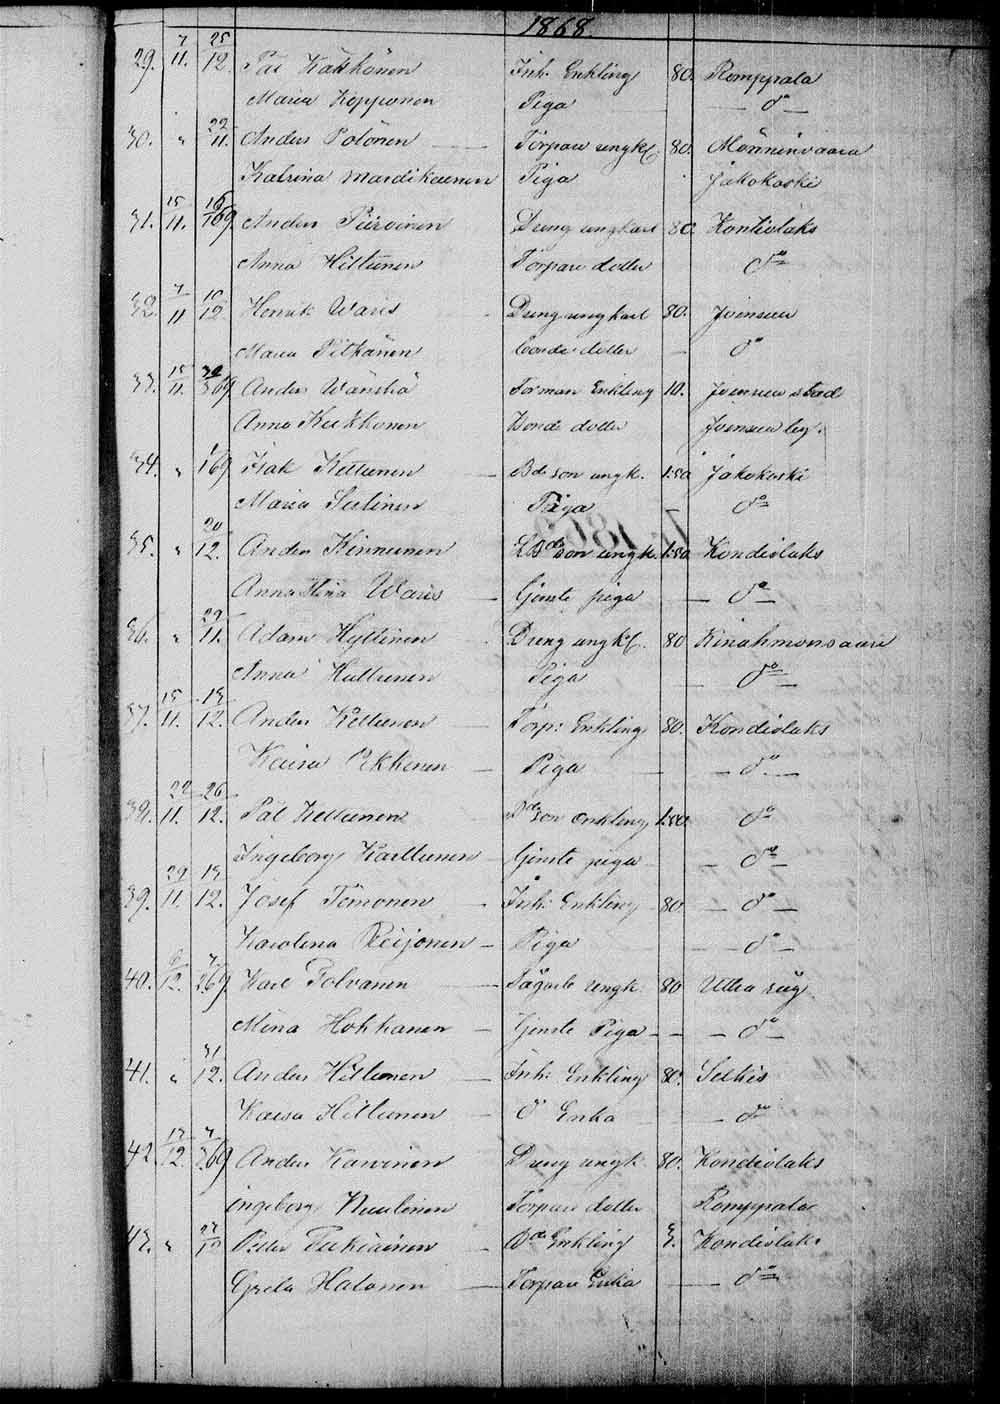 1868.
29. 7/11. 25/12. Pål Kakkonen Inh. Enkling 80. Romppala
Maria Kopponen Piga — do —
30. " 22/11. Anders Polönen Torpare ungk. 80. Mönninvaara
Katrina Mardikainen Piga Jakokoski
31. 15/11. Anders Piiroinen Dreng ungkarl 80. Kontiolaks
Anna Hiltunen Torpare dotter do
32. 7/11 10/12. Henrik Waris Dreng ungkarl 80. Joensuu
Maria Pitkänen bonde dotter — do
33. 15/11. Anders Wänskä Forman Enkling 10. Joensuu stad
Anna Kukkonen Bonde dotter Joensuu
34. " Isak Kettunen Bd son ungk. 1:50 Jakokoski
Maria Piga — do
35. " 20/12. Anders Kinnunen son ungk. 1:50 Kondiolaks
Anna Stina Waris — Gjenste piga — do —
36. " 29/11. Adam Hyttinen Dreng ungk. 80 Kinahmonsaari
Anna Hattunen Piga — do —
37. 15/11. 13/12. Anders Kettunen Torp: Enkling 80. Kondiolaks
Kaisa — Piga — do —
38. 22/11. 26/12. Pål Kettunen Bd son Enkling 1:50. do
Ingeborg Karttunen — Gjenste piga — do
39. 29/11. 13/12. Josef Timonen — Inh: Enkling 80 — do —
Karolina Reijonen — Piga — do —
40. Karl Tolvanen ungk. 80 Utra såg
Mina Hokkanen — Gjenste Piga — — do —
41. " 31/12. Anders Hiltunen — Inh: Enkling 80. Selkis
Kaisa Hiltunen — do Enka — do —
42. Anders Karvinen Dreng ungk. 80. Kondiolaks
Ingeborg Nuutinen Torpare dotter Romppala
43. " Petter Tukiainen — Bd Enkling 3. Kondiolaks
Greta Halonen — Torpare Enka — do —